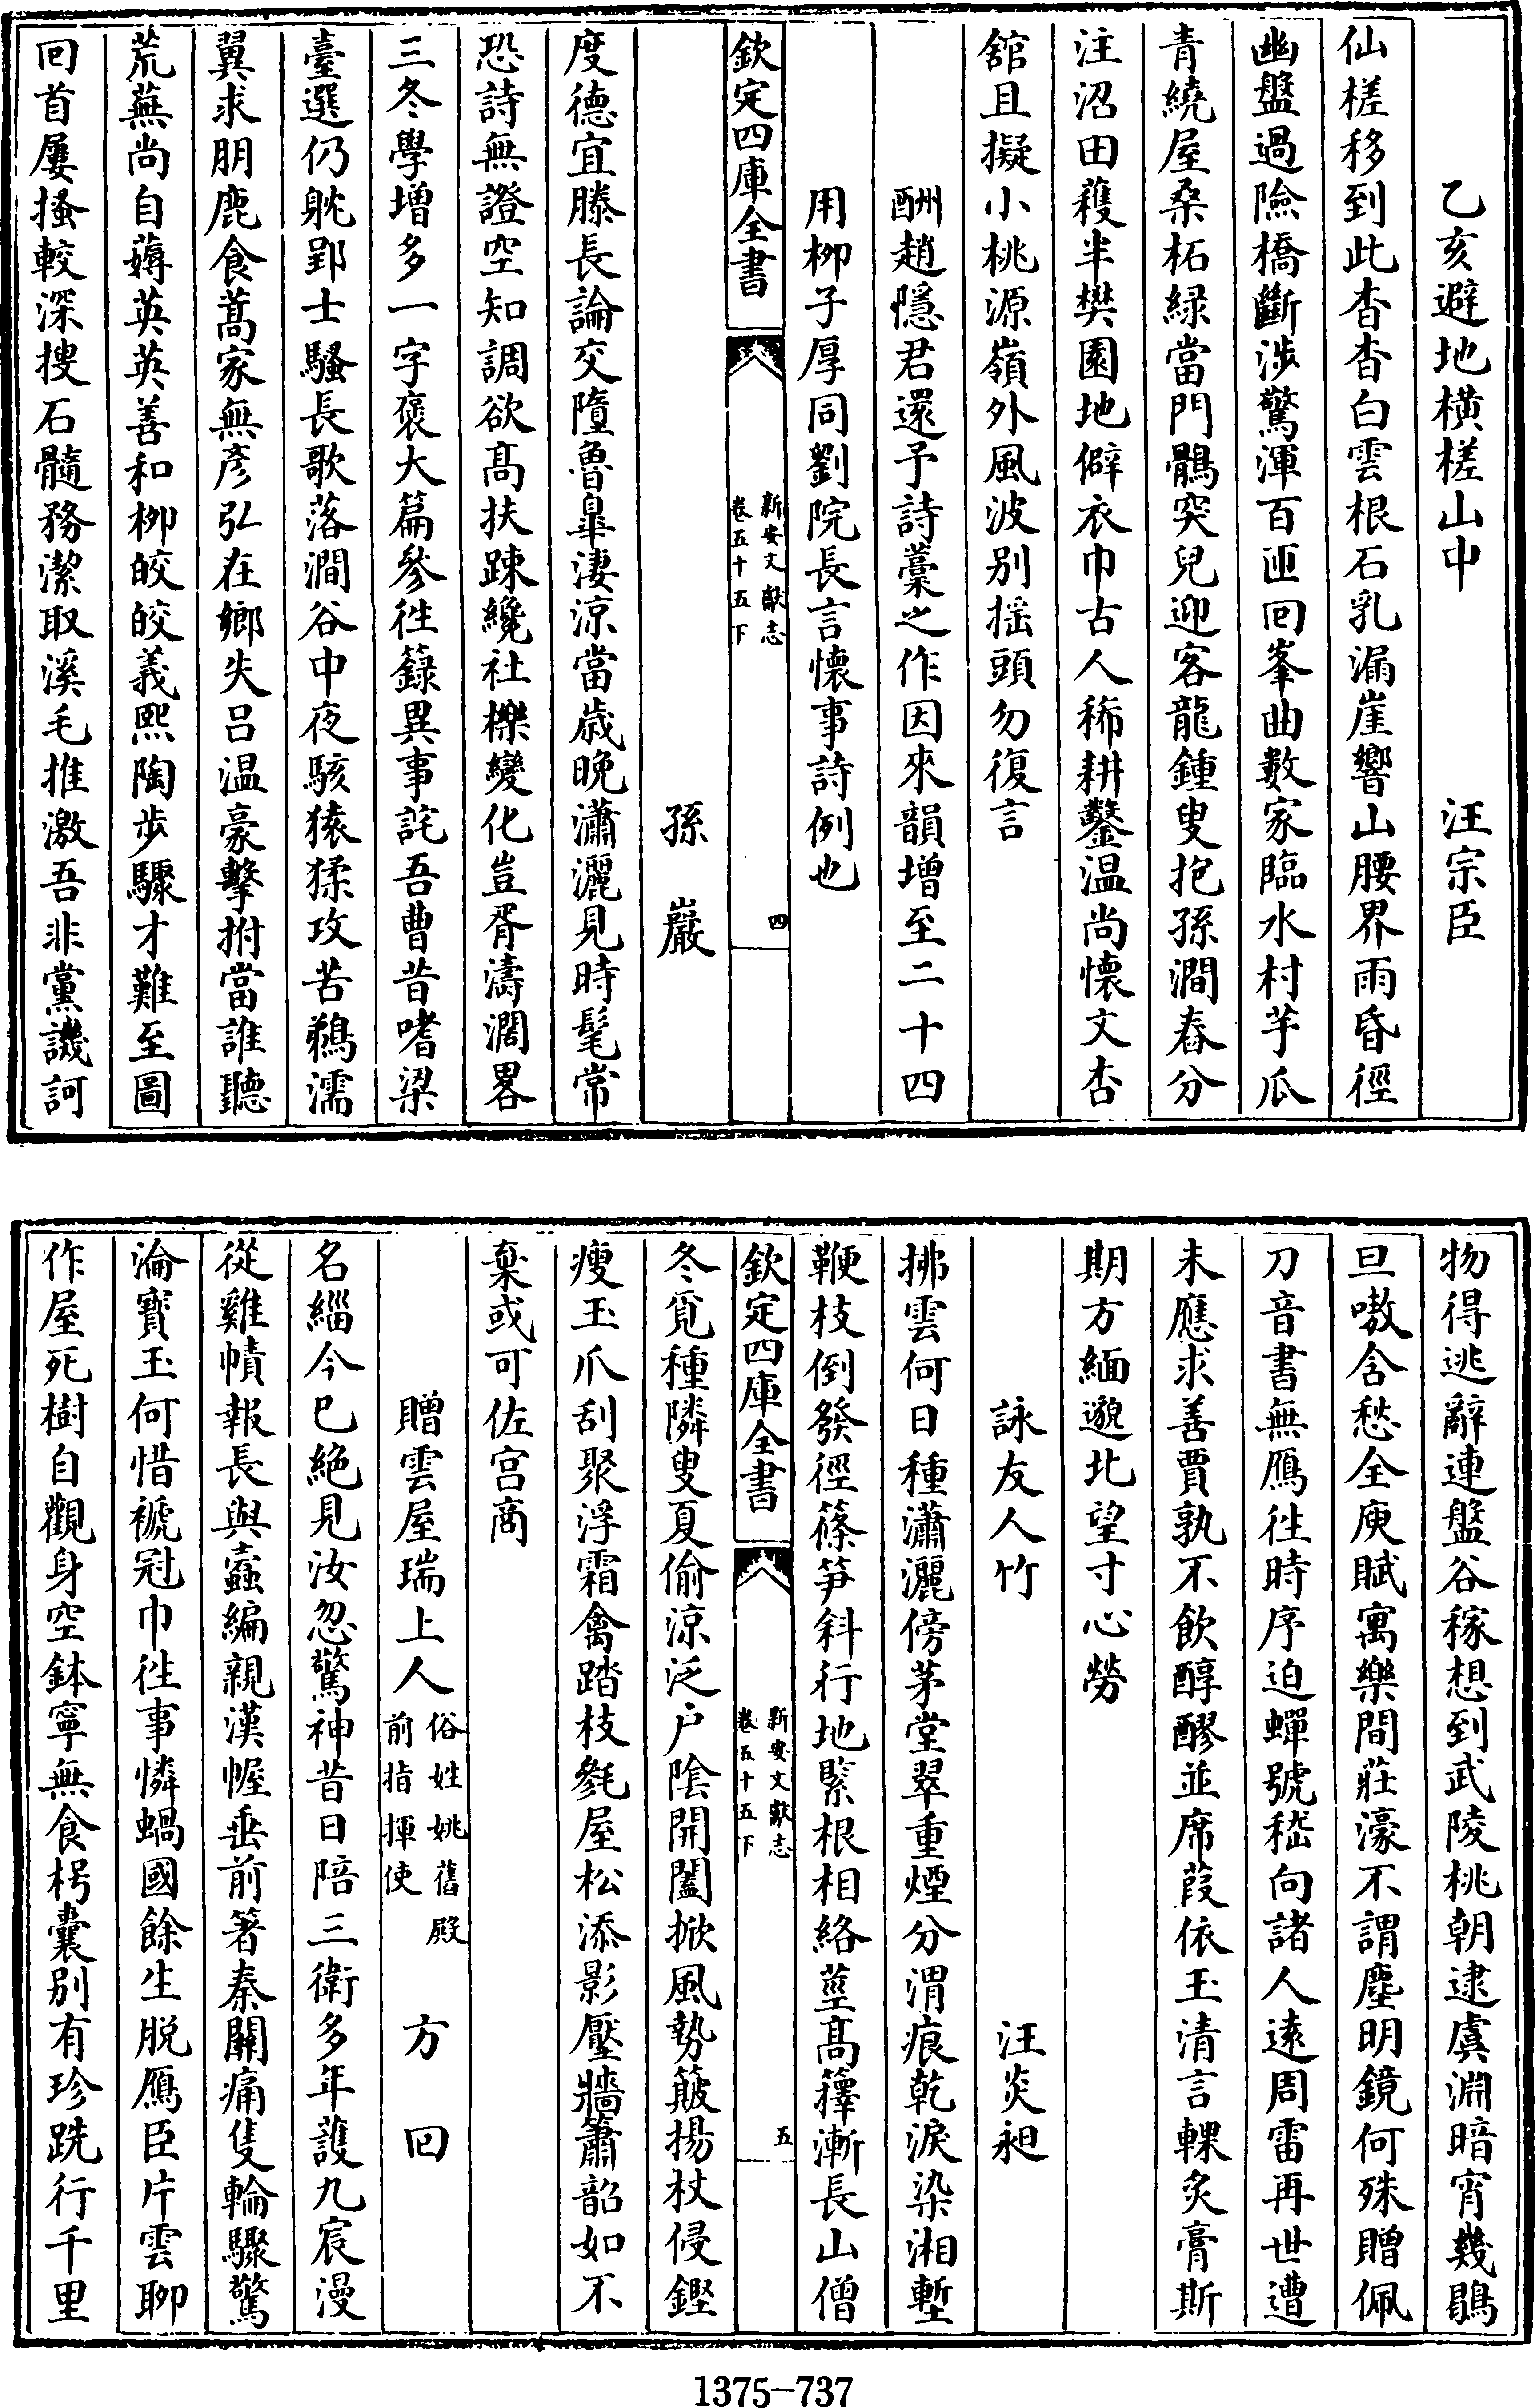 乙亥避地橫槎山中 汪宗臣
仙槎移到此杳杳白雲根石乳漏崖響山腰界雨昏徑
幽盤過險橋斷涉驚渾百匝回峯曲數家臨水村芋瓜
青繞屋桑柘綠當門鶻突兒迎客龍鍾叟抱孫澗舂分
注沼田穫半樊園地僻衣巾古人稀耕鑿温尚懷文杏
舘且擬小桃源嶺外風波别揺頭勿復言
酬趙隱君還予詩藁之作因來韻增至二十四
用柳子厚同劉院長言懷事詩例也
欽定四庫全書 新安文獻志 卷五十五下 四
孫巖
度德宜滕長論交墮魯臯淒涼當歲晚瀟灑見時髦常
恐詩無證空知調欲髙扶踈纔社櫟變化豈胥濤濶畧
三冬學增多一字褒大篇參徃籙異事詫吾曹昔嗜梁
臺選仍躭郢士騷長歌落澗谷中夜駭猿猱攻苦鵜濡
翼求朋鹿食蒿家無彦弘在鄉失呂温豪擊拊當誰聽
荒蕪尚自薅英英善和柳皎皎義熙陶步驟才難至圖
回首屢搔較深搜石髓務潔取溪毛推激吾非黨譏訶
物得逃辭連盤谷稼想到武陵桃朝逮虞淵暗宵幾鶡
旦嗷含愁全庾賦寓樂間莊濠不謂塵明鏡何殊贈佩
刀音書無鴈徃時序迫蟬號嵇向諸人逺周雷再世遭
未應求善賈孰不飲醇醪並席葭依玉清言輠炙膏斯
期方緬邈北望寸心勞
詠友人竹 汪炎昶
拂雲何日種瀟灑傍茅堂翠重煙分渭痕乾淚染湘塹
鞭枝倒發徑篠笋斜行地緊根相絡莖髙籜漸長山僧
欽定四庫全書 新安文獻志 卷五十五下 五
冬覓種隣叟夏偷涼泛户隂開闔掀風勢簸揚杖侵鏗
瘦玉爪刮聚浮霜禽踏枝毿屋松添影壓牆簫韶如不
棄或可佐宫商
贈雲屋瑞上人 俗姓姚舊殿前指揮使 方回
名緇今已絶見汝忽驚神昔日陪三衛多年護九宸漫
從雞幘報長與蠧編親漢幄垂前箸秦關痛隻輪驟驚
淪寶玉何惜褫冠巾徃事憐蝸國餘生脱鴈臣片雲聊
作屋死樹自觀身空鉢寧無食枵囊别有珍跣行千里
1375-737